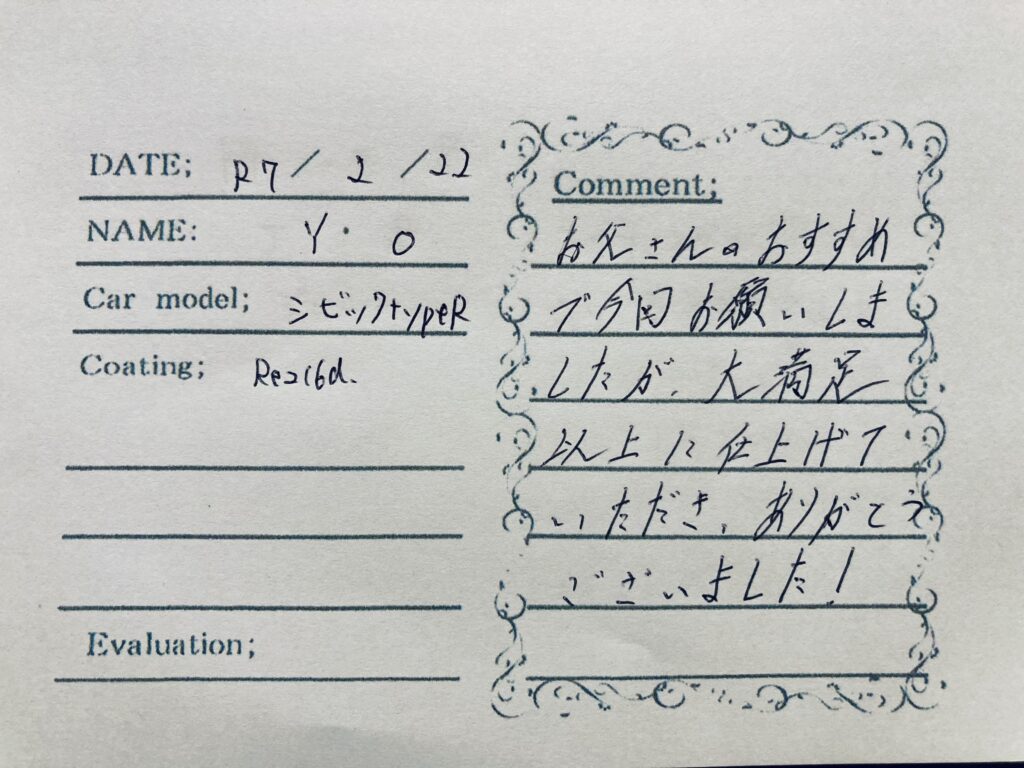 DATE; R7/2/22
NAME: Y・O
Car model; シビックtypeR
Coating;
Evaluation;
Comment;
お父さんのおすすめ
で今回お願いしま
したが、大満足
以上に仕上げて
いただき、ありがとう
ございました!